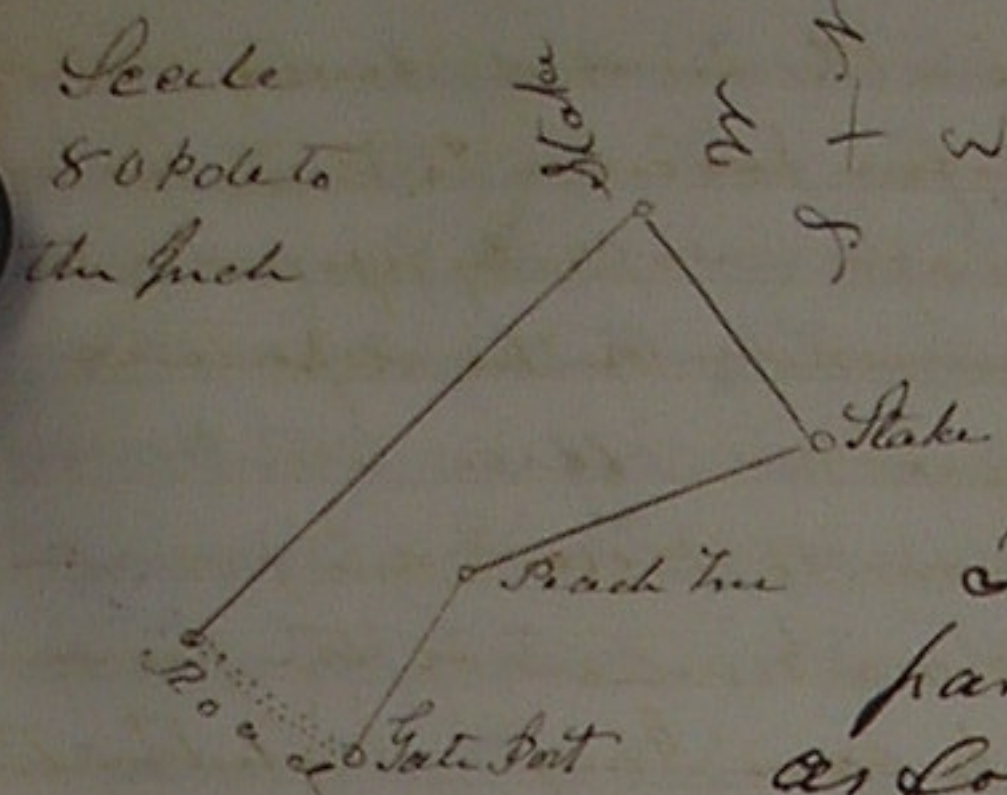 Scale
80 Pole to
the Inch
Stake
N
W
E
S
Stake
Peach Tree
Road
Gate Post
as